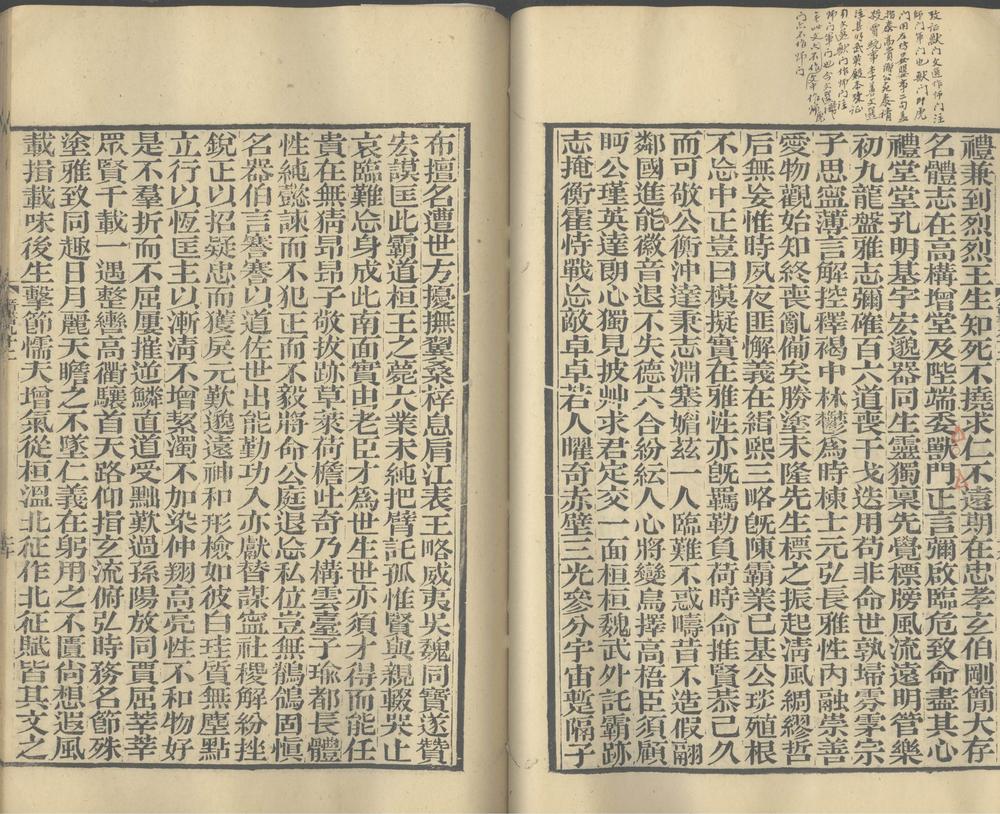 攷証獸門文選作師門注
師門軍門也獸門卽虎
禮兼到烈烈王生知死不撓求仁不遠期在忠孝玄伯剛簡大存
名體志在高構增堂及陛端委獸門正言彌啟臨危致命盡其心
禮堂堂孔明基宇宏邈器同生靈獨稟先覺標牓風流遠明管樂
初九龍盤雅志彌確百六道喪干戈迭用苟非命世孰埽雰雺宗
子思寧薄言解控釋褐中林鬱爲時棟士元弘長雅性內融崇善
愛物觀始知終喪亂備矣勝塗未隆先生標之振起清風綢繆哲
后無妄惟時夙夜匪懈義在緝熙三略旣陳霸業已基公琰殖根
不忘中正豈曰模擬實在雅性亦旣羈勒負荷時命推賢恭己久
而可敬公衡沖達秉志淵塞媚茲一人臨難不惑疇昔不造假翮
鄰國進能徽音退不失德六合紛紜人心將變鳥擇高梧臣須顧
眄公瑾英達朗心獨見披艸求君定交一面桓桓魏武外託霸跡
志掩衡霍恃戰忘敵卓卓若人曜奇赤壁三光參分宇宙暫隔子
布擅名遭世方擾撫翼桑梓息肩江表王略威夷吳魏同寶遂贊
宏謨匡此霸道桓王之薨大業未純把臂託孤惟賢與親輟哭止
哀臨難忘身成此南面實由老臣才爲世生世亦須才得而能任
貴在無猜昂昂子敬拔跡草萊荷檐吐奇乃構雲臺子瑜都長體
性純懿諫而不犯正而不毅將命公庭退忘私位豈無鶺鴒固愼
名器伯言謇謇以道佐世出能勤功入亦獻替謀寍社稷解紛挫
銳正以招疑忠而獲戾元歎邈遠神和形檢如彼白珪質無塵點
立行以恆匡主以漸淸不增絜濁不加染仲翔高亮性不和物好
是不羣折而不屈屢摧逆鱗直道受黜歎過孫陽放同賈屈莘莘
眾賢千載一遇整轡高衢驤首天路仰揖玄流俯弘時務名節殊
塗雅致同趣日月麗天瞻之不墜仁義在躬用之不匱尙想遐風
載揖載味後生擊節懦夫增氣從桓溫北征作北征賦皆其文之